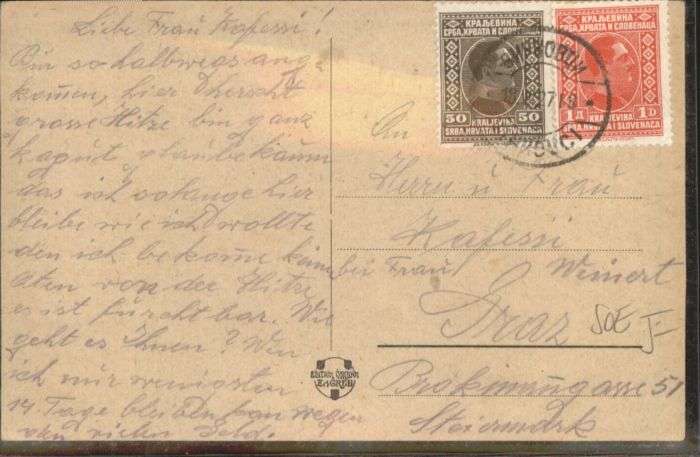 Liebe Frau Kafessi!
Bin so halbwegs ange
komen, hier herscht
grosse Hitze bin ganz
kaput glaube kaum
das ich so lange hier
bleibe wie ich wollte
den ich bekome
von der Hitze
es ist furchtbar. Wie
geht es Ihnen? Wen
ich nur wenigsten
14 Tage bleiben kan wegen
den vielen Geld.
КРАЉЕВИНА
СРБА, ХРВАТА И СЛОВЕНАЦА
50 50
KRALJEVINA
SRBA, HRVATA I SLOVENACA
КРАЉЕВИНА
СРБА, ХРВАТА И СЛОВЕНАЦА
1Д 1D
KRALJEVINA
SRBA, HRVATA I SLOVENACA
An
Herrn u Frau
Kafessi
bei Frau Weinert
Graz
SOE
Brokmanngasse 51
Steiermark
ZAGREB